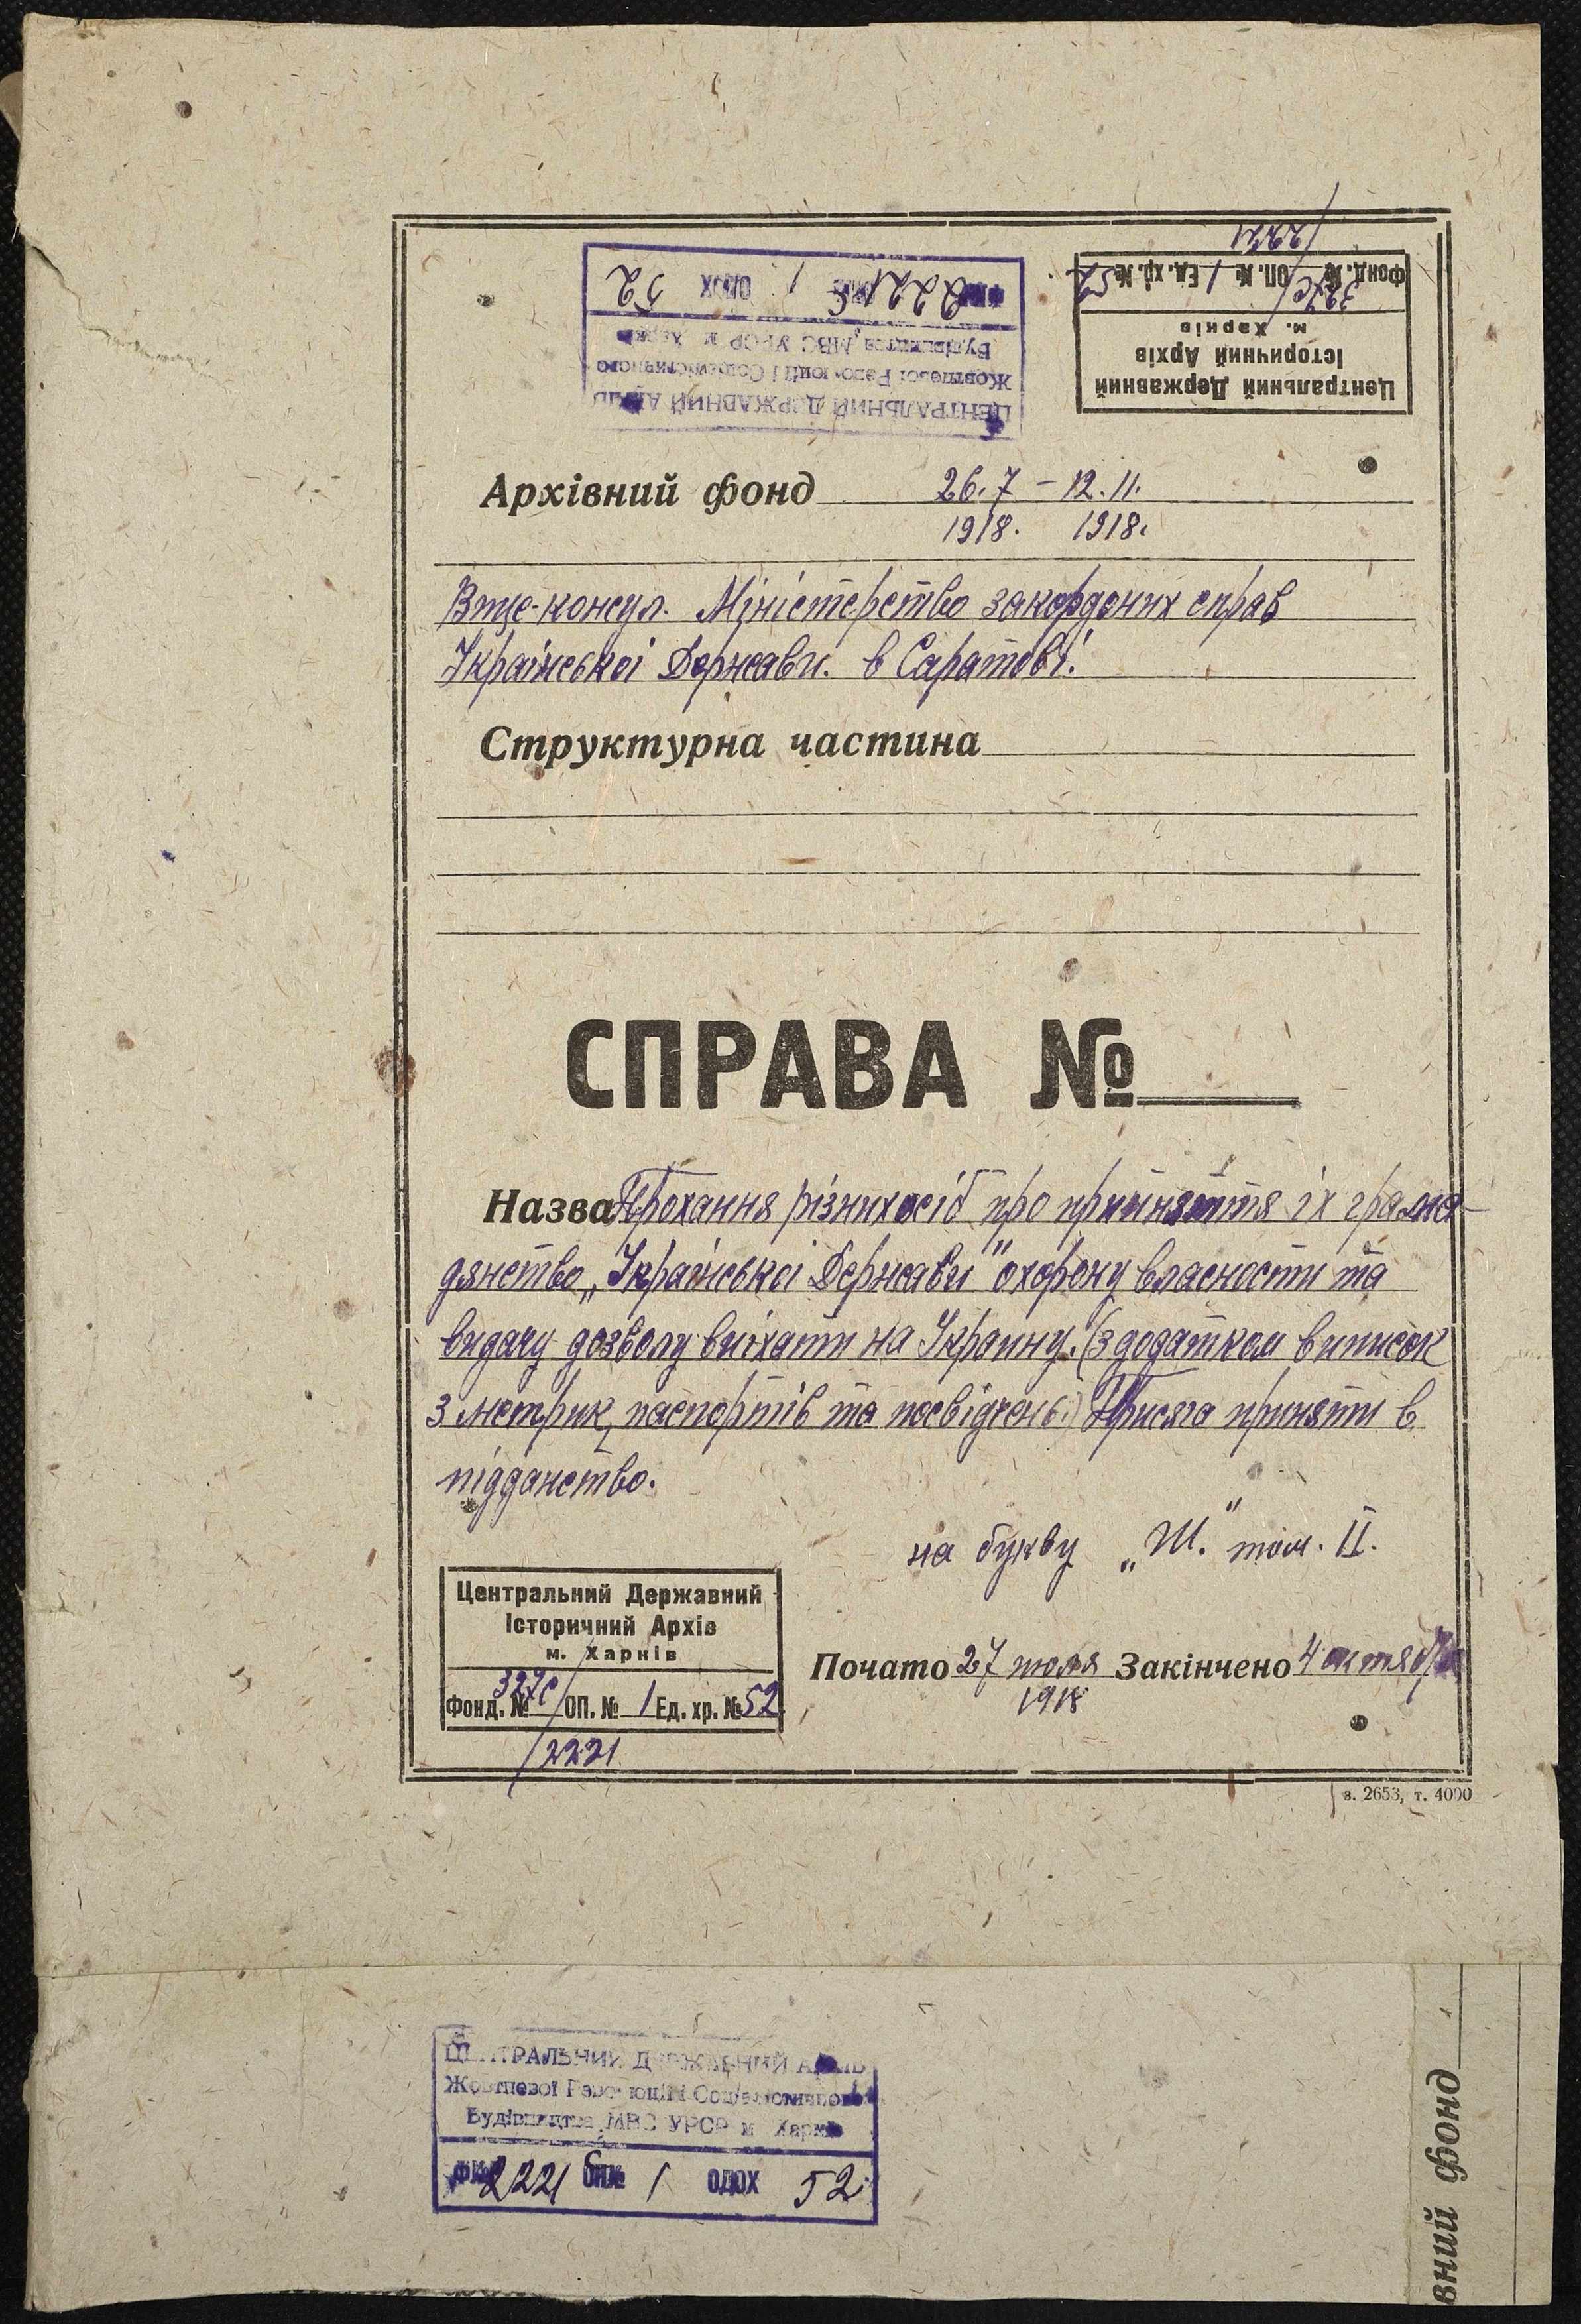 2221
Фонд. № 327c/ ОП. № 1 Ед. хр. № 52
м. Харнів
Історичний Архів
Центральний Державний
2221 1 ОДОХ 52
Будівництва МВС УРСР м Харків
Жовтневої Революції і Соціалістичного
ЦЕНТРАЛЬНИЙ ДЕРЖАВНИЙ АРХІВ
Архівний фонд 26.7 – 12.11.
1918. 1918.
Віце-консул. Міністерство закордоних справ
Української Держави. в Саратові.
Структурна частина
СПРАВА №
Назва Прохання різних осіб про прийняття їх грама-
дянство „Української Держави" охорону власности та
видачу дозволу виїхати на Украину. (з додатком виписок
з метрик, паспортів та посвідчень.) Присяга приняти в
підданство.
на букву „Ш." том. II.
Центральний Державний
Історичний Архів
м. Харнів
Фонд. № 327c/ ОП. № 1 Ед. хр. № 52
/2221
Почато 27 июля Закінчено 4 октября
1918
з. 2653, т. 4000
ЦЕНТРАЛЬНИЙ ДЕРЖАВНИЙ АРХІВ
Жовтневої Революції і Соціалістичного
Будівництва МВС УРСР м Харків
2221 1 ОДОХ 52
вний фонд